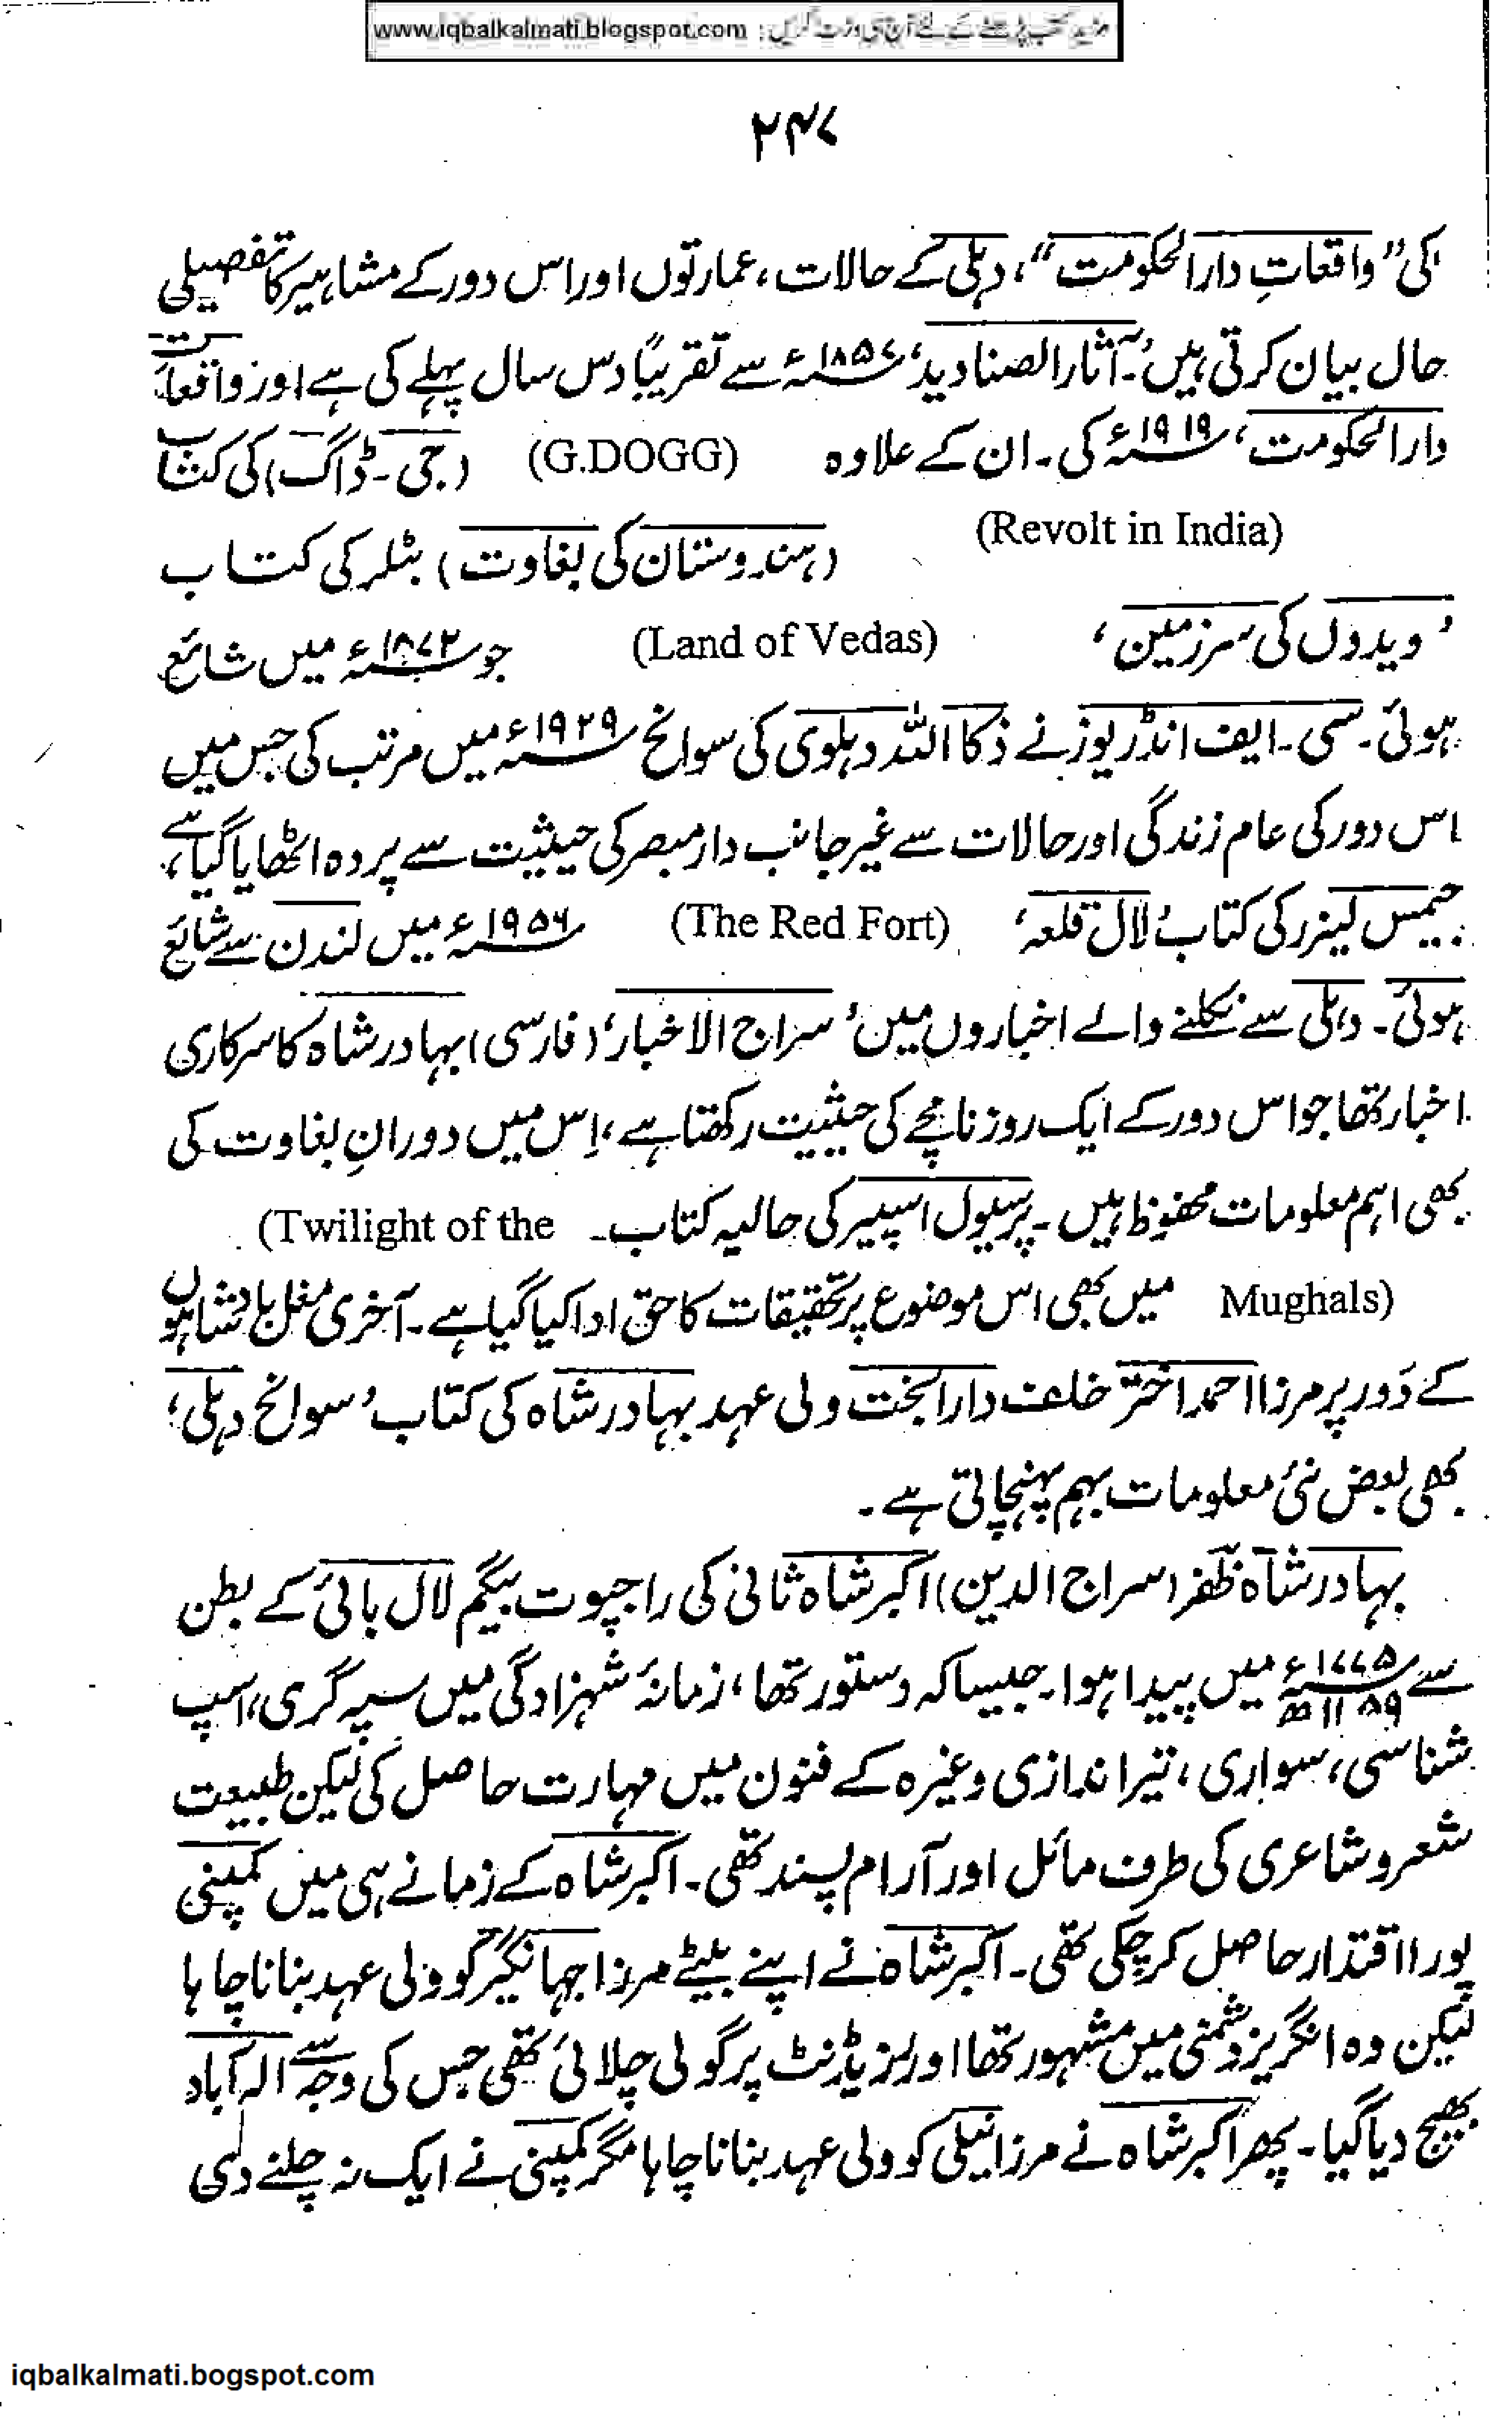 مزید کتب پڑھنے کے لئے آج ہی وزٹ کریں : www.iqbalkalmati.blogspot.com
۲۴۷
کی ”واقعاتِ دارالحکومت“، دہلی کے حالات، عمارتوں اور اس دور کے مشاہیر کا تفصیلی
حال بیان کرتی ہیں۔ ’آثار الصنادید‘ ۱۸۵۷ء سے تقریباً دس سال پہلے کی ہے اور ’واقعات
دارالحکومت‘ ۱۹۱۹ء کی۔ ان کے علاوہ (G.DOGG) (جی۔ ڈاگ) کی کتاب
(Revolt in India) (ہندوستان کی بغاوت) بٹلر کی کتاب
’ویدوں کی سرزمین‘ (Land of Vedas) جو ۱۸۷۲ء میں شائع
ہوئی۔ سی۔ ایف انڈریوز نے ذکا اللہ دہلوی کی سوانح ۱۹۲۹ء میں مرتب کی جس میں
اس دور کی عام زندگی اور حالات سے غیر جانب دار مبصر کی حیثیت سے پردہ اٹھایا گیا ہے،
جیمس لینرر کی کتاب ’لال قلعہ‘ (The Red Fort) ۱۹۵۶ء میں لندن سے شائع
ہوئی۔ دہلی سے نکلنے والے اخباروں میں ’سراج الاخبار‘ (فارسی) بہادر شاہ کا سرکاری
اخبار تھا جو اس دور کے ایک روزنامچے کی حیثیت رکھتا ہے، اِس میں دورانِ بغاوت کی
بھی اہم معلومات محفوظ ہیں۔ پرسیول اسپیر کی حالیہ کتاب۔ (Twilight of the
Mughals) میں بھی اس موضوع پر تحقیقات کا حق ادا کیا گیا ہے۔ آخری مغل بادشاہوں
کے دَور پر مرزا احمد اختر خلف دارا بخت ولی عہد بہادر شاہ کی کتاب ’سوانح دہلی‘
بھی بعض نئی معلومات بہم پہنچاتی ہے۔
بہادر شاہ ظفر (سراج الدین) اکبر شاہ ثانی کی راجپوت بیگم لال بائی کے بطن
سے ۱۷۷۵ء ۱۱۸۹ھ میں پیدا ہوا۔ جیسا کہ دستور تھا، زمانۂ شہزادگی میں سپہ گری، اسپ
شناسی، سواری، تیر اندازی وغیرہ کے فنون میں مہارت حاصل کی لیکن طبیعت
شعر و شاعری کی طرف مائل اور آرام پسند تھی۔ اکبر شاہ کے زمانے ہی میں کمپنی
پورا اقتدار حاصل کر چکی تھی۔ اکبر شاہ نے اپنے بیٹے مرزا جہانگیر کو ولی عہد بنانا چاہا
لیکن وہ انگریز دشمنی میں مشہور تھا اور ریزیڈنٹ پر گولی چلائی تھی جس کی وجہ سے الہ آباد
بھیج دیا گیا۔ پھر اکبر شاہ نے مرزا نیلی کو ولی عہد بنانا چاہا مگر کمپنی نے ایک نہ چلنے دی
iqbalkalmati.bogspot.com